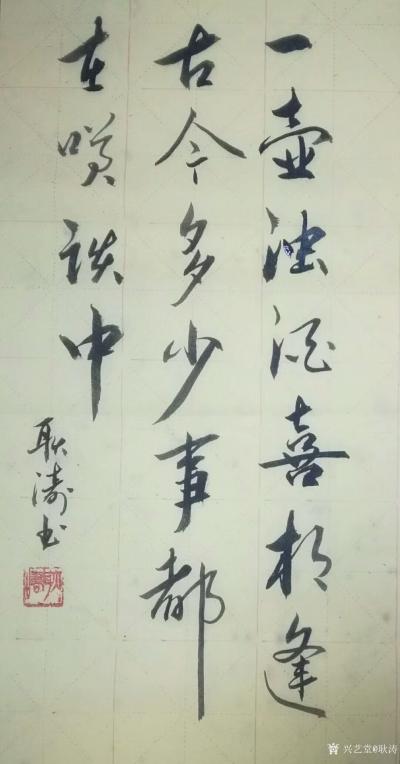 一壶浊酒喜相逢
古今多少事都
在笑谈中
耿涛书
兴艺堂@耿涛